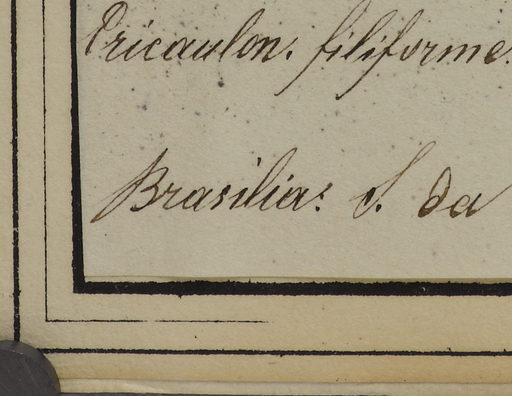 Eriocaulon. filiforme.
Brasilia: S. da